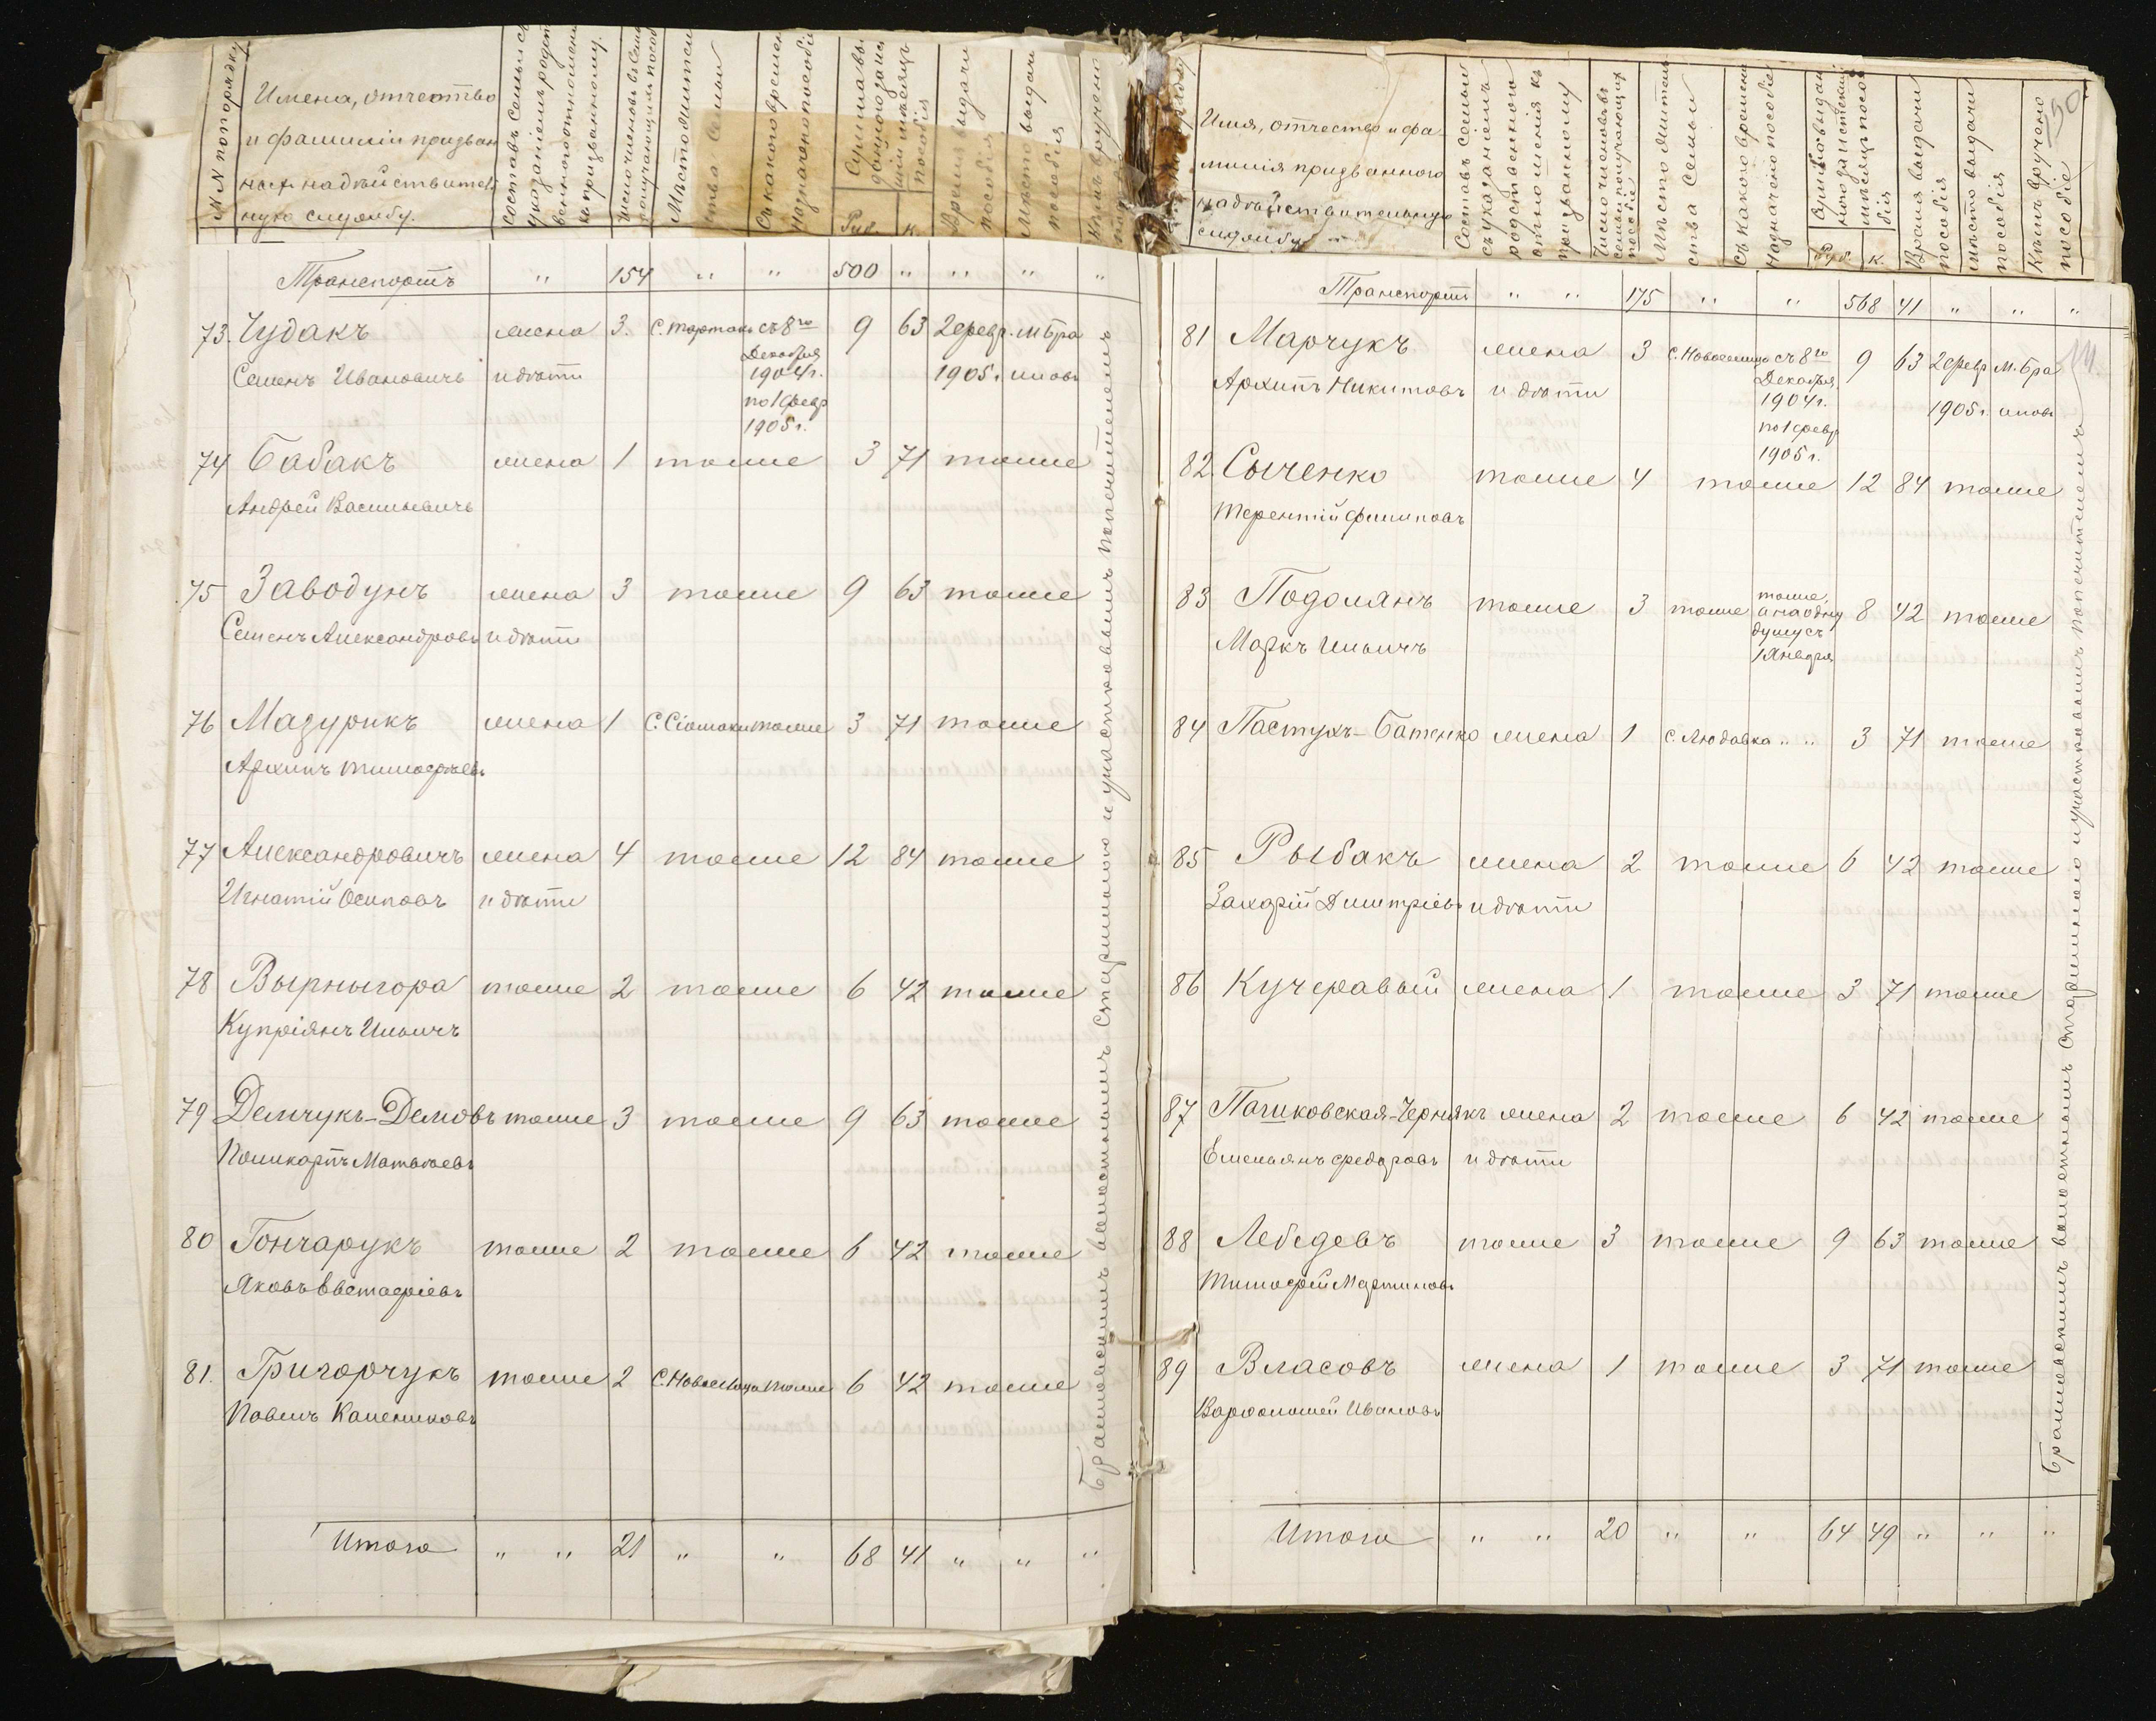 №№ по порядку
Имена, отчество
и фамиліи призван
ныхъ на дѣйствитель
ную службу.
Составъ семьи съ
указаніемъ родст
веннаго отношенія
къ призванному.
Число членовъ въ семьѣ
получающихъ пособ
Мѣсто житель
ства семьи
Съ какого времени
назначено пособіе
Сумма вы
даннаго за истек
шій мѣсяцъ
пособія
Руб. к.
Время выдачи
пособія
Мѣсто выдачи
пособія
Кѣмъ вручено
Транспортъ " 154 " " 500 " " " "
73. Чудакъ жена 3. с. Мартын съ 8го 9 63 2 февр. м Бра
Декабря
Семенъ Ивановичъ и дѣти 1904 г. 1905 г. иловъ
по 1 февр
1905 г.
74 Бабакъ жена 1 тоже 3 71 тоже
Андрей Васильевичъ
75 Заводунъ жена 3 тоже 9 63 тоже
Семенъ Александровъ и дѣти
76 Мазурикъ жена 1 с. Сіомаки тоже 3 71 тоже
Архипъ Тимофѣевъ
77 Александровичъ жена 4 тоже 12 84 тоже
Игнатій Осиповъ и дѣти
78 Вырныгора тоже 2 тоже 6 42 тоже
Купріянъ Ильичъ
79 Демчукъ-Демовъ тоже 3 тоже 9 63 тоже
Поликарпъ Матвѣевъ
80 Гончарукъ тоже 2 тоже 6 42 тоже
Яковъ Евстафіевъ
81. Григорчукъ тоже 2 с. Новоселица тоже 6 42 тоже
Павелъ Калениковъ
Браиловскимъ волостнымъ старшиною и участковымъ попечителемъ
Итого " " 21 " " 68 41 " " "
Имя, отчество и фа-
милія призваннаго
на дѣйствительную
службу
Составъ семьи
съ указаніемъ
родственнаго
отношенія къ
призванному
Число членовъ
семьи получающихъ
пособіе
Мѣсто житель
ства семьи
Съ какого времени
назначено пособіе
Сумма выдан
наго за истекшій
мѣсяцъ пособія
Руб. к.
Время выдачи
пособія
Мѣсто выдачи
пособія
Кѣмъ вручено
пособіе
50
Транспортъ " " 175 " " 568 41 " " "
81 Марчукъ жена 3 с. Новоселица съ 8го 9 63 2 февр м. Бра
Декабря
Архипъ Никитовъ и дѣти 1904 г. 1905 г. иловъ
по 1 февр
1905 г.
82. Сыченко тоже 4 тоже 12 84 тоже
Терентій Филиповъ
83 Подолянъ тоже 3 тоже тоже, 8 42 тоже
а на одну
душу съ
1 Января
Маркъ Ильичъ
84 Пастухъ-Батенко жена 1 с. Людавка " " 3 71 тоже
85 Рыбакъ жена 2 тоже 6 42 тоже
Захарій Димитріевъ и дѣти
86 Кучеравый жена 1 тоже 3 71 тоже
87 Пашковская-Чернякъ жена 2 тоже 6 42 тоже
Емельянъ Федоровъ и дѣти
88 Лебедевъ тоже 3 тоже 9 63 тоже
Тимофей Мартиновъ
89 Власовъ жена 1 тоже 3 71 тоже
Варфоломей Ивановъ
Браиловскимъ волостнымъ старшиною и участковымъ попечителемъ
Итого " " 20 " " 64 49 " " "